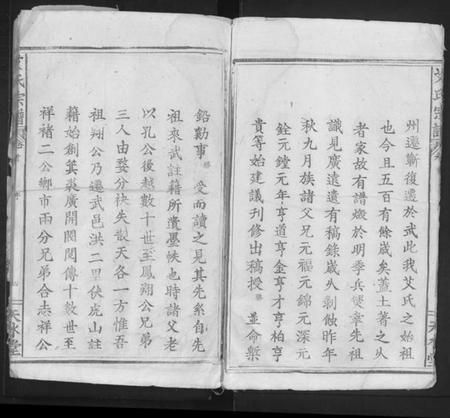 州遷蘄復遷於武此我艾氏之始祖
也今且五百有餘歲矣蓋土著之久
者家故有譜燬於明季兵燹幸先祖
識見廣遠遺有稿錄歲久剝蝕昨年
秋九月族諸父兄元福元錦元深元
銓元鐘元年亨道亨金亨才亨柏亨
貴等始建議刊修出稿授 並命槩
鉛勷事 受而讀之見其先系自先
祖來武註籍所遺墨帙也時諸父老
以孔公後越數十世至鳳翔公兄弟
三人由婺分袂失散天各一方惟吾
祖翔公乃遷武邑洪二里伏虎山註
籍始創箕裘廣開閥閱傳十數世至
祥禇二公鄉市兩分兄弟合志祥公
艾氏宗譜
天水堂
氏宗譜
天水堂